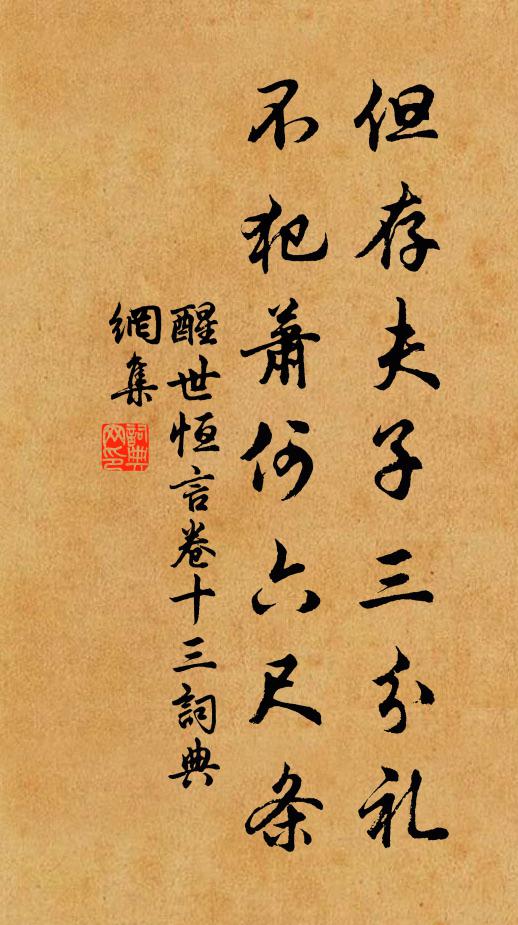 但存夫子三分礼
不犯萧何六尺条
醒世恒言卷十三詞典
網集
詞典
网印